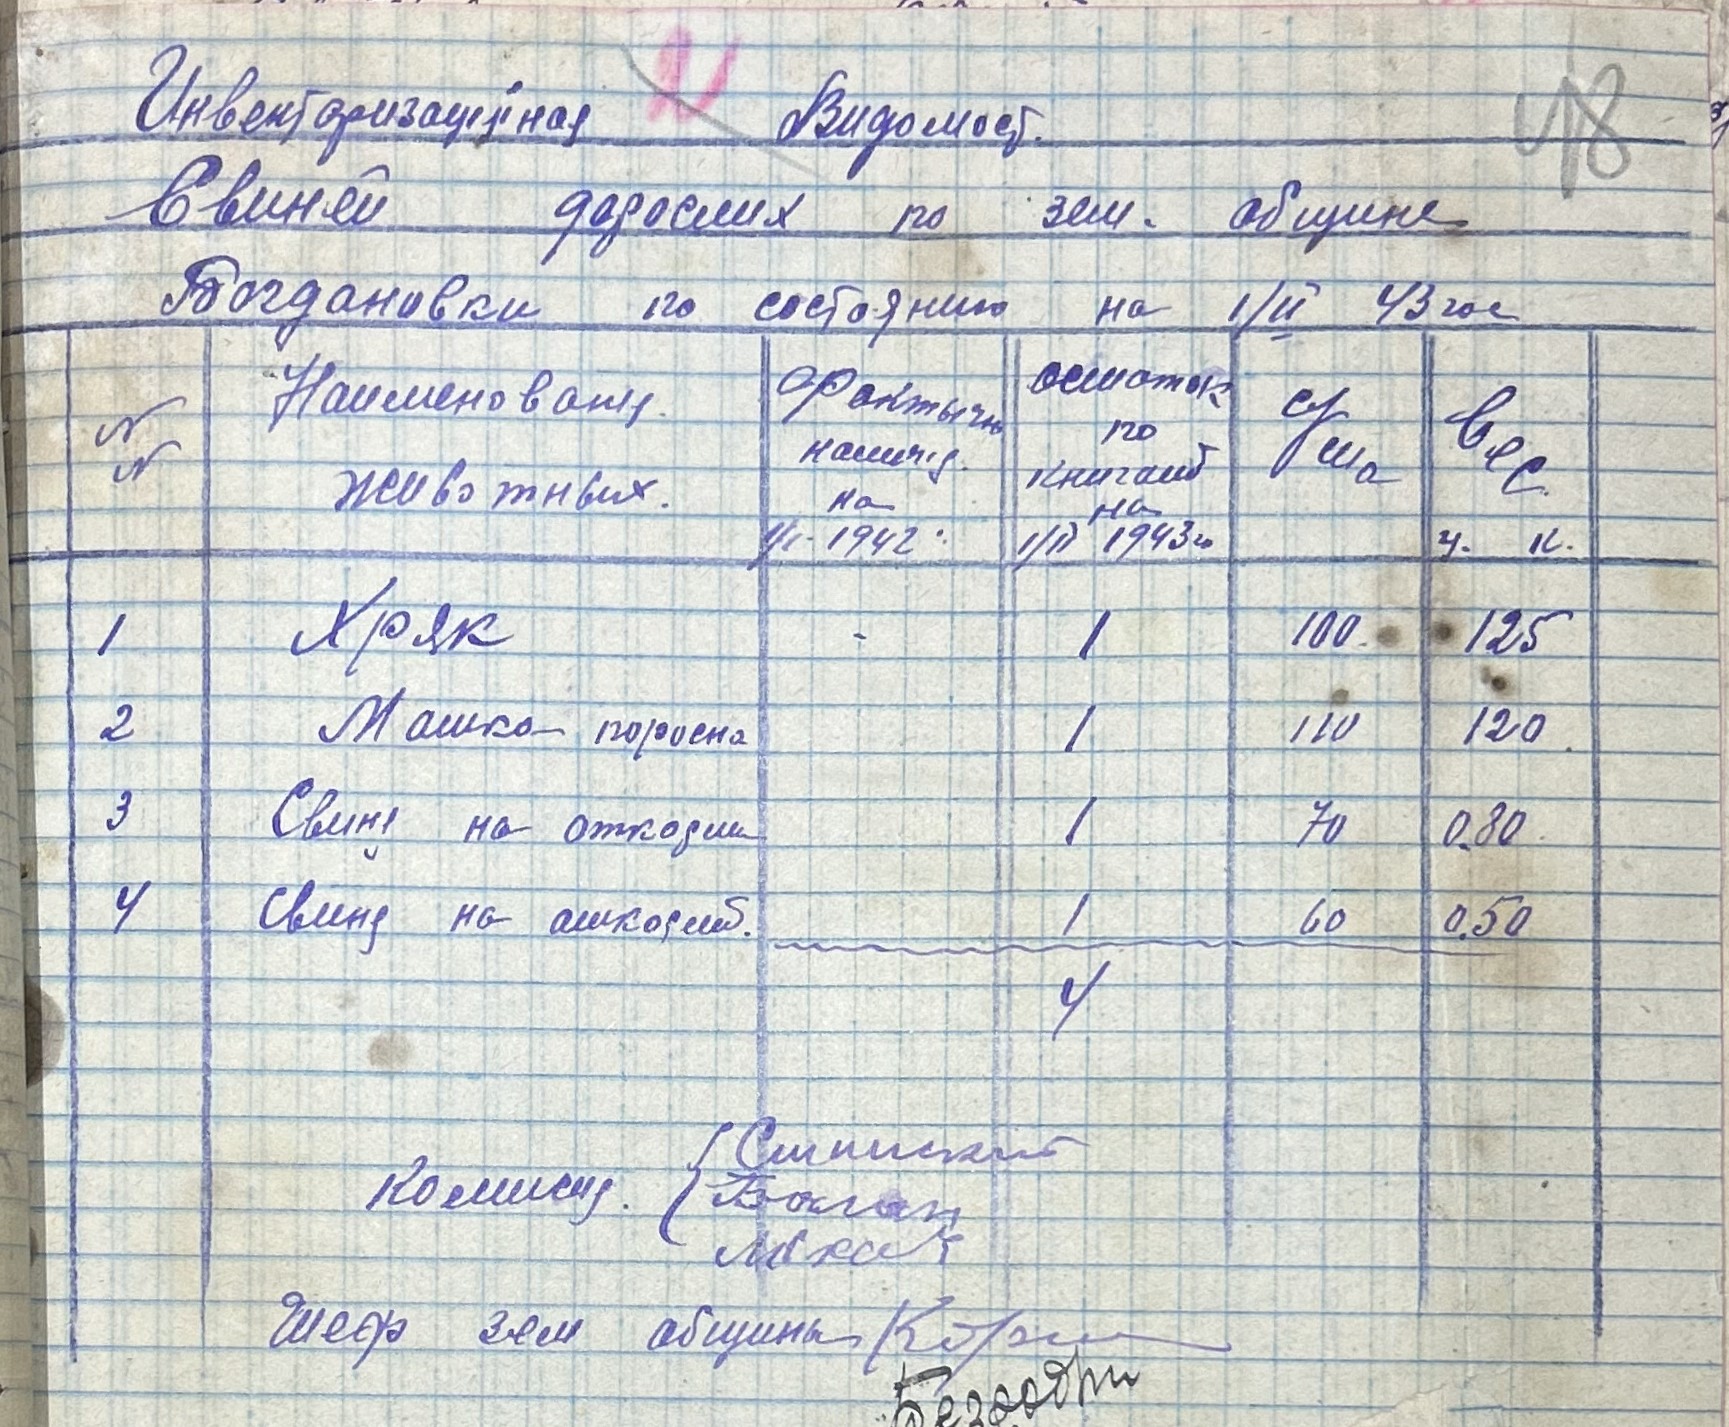 Инвентаризаційная Видомост.
48
Свиней дорослих по зем. общине
Богдановки по состоянию на 1/II 43 год
N N
Наименованя животных.
Фактычн наличя. на 1/I 1942
остаток по книгам на 1/II 1943г
Сума
Вес ц. к.
1 Хряк - 1 100 125
2 Машка поросна 1 110 120
3 Свиня на откорми 1 70 0.80
4 Свиня на откормі. 1 60 0.50
4
Комисия.
Шеф зем общины